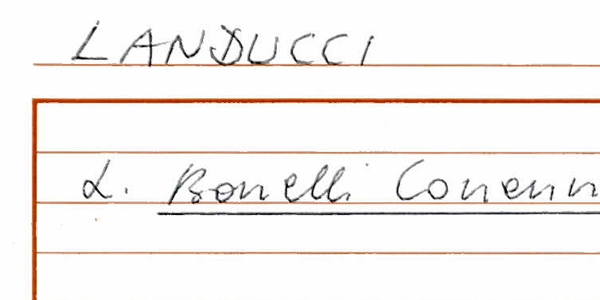 LANDUCCI
L. Bonelli Conenn